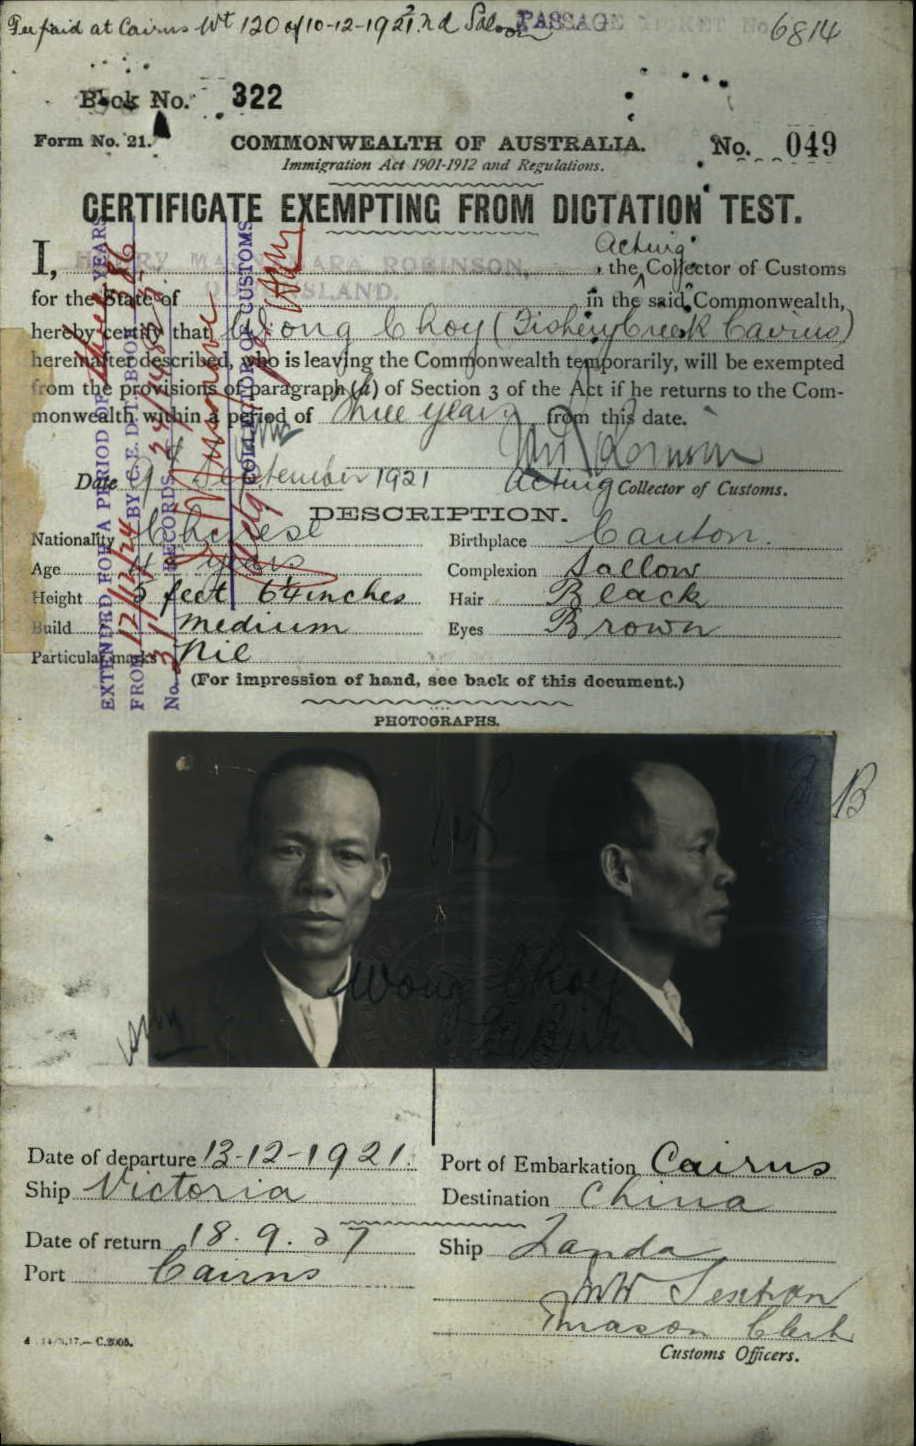 Fee paid at Cairns Wt 120 of 10-12-1921. 2nd Saloon PASSAGE TICKET No 6814
Book No. 322
Form No. 21. COMMONWEALTH OF AUSTRALIA. No. 049
Immigration Act 1901-1912 and Regulations.
CERTIFICATE EXEMPTING FROM DICTATION TEST.
Acting
I, HENRY ROBINSON, the Collector of Customs
QUEENSLAND.
for the State of in the said Commonwealth,
hereby certify that Wong Choy (Fishery Creek Cairns)
hereinafter described, who is leaving the Commonwealth temporarily, will be exempted
from the provisions of paragraph (a) of Section 3 of the Act if he returns to the Com-
monwealth within a period of three years from this date.
Date 9th September 1921 Acting Collector of Customs.
DESCRIPTION.
Nationality Chinese Birthplace Canton.
Age years Complexion Sallow
Height 5 feet 6¼ inches Hair Black
Build Medium Eyes Brown
Particular marks Nil
(For impression of hand, see back of this document.)
EXTENDED FOR A PERIOD OF YEARS
FROM 12/12/24 BY C.E.D.T. BOOK
No. RECORDS
COLLECTOR OF CUSTOMS
PHOTOGRAPHS.
B
Wong Choy
Date of departure 13-12-1921. Port of Embarkation Cairns
Ship Victoria Destination China
Date of return 18.9.27 Ship Tanda
Port Cairns
Sexton
Clerk
C.2005.
Customs Officers.